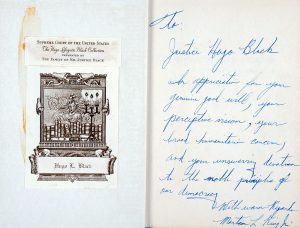 SUPREME COURT OF THE UNITED STATES
The Hugo Lafayette Black Collection
PRESENTED BY
THE FAMILY OF MR. JUSTICE BLACK
Hugo L. Black
To
Justice Hugo Black
In appreciation for your
genuine good will, your
perceptive vision, your
broad humanitarian concern,
and your unswerving devotion
to the noble principles of
our democracy
With warm Regards
Martin L. King Jr.